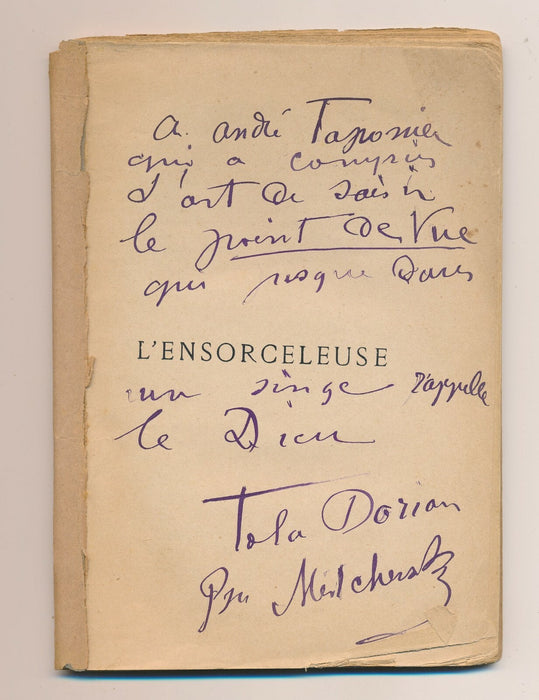 A André Taponier
qui a compris
l'art de saisir
le point de Vue
qui jusque dans
L'ENSORCELEUSE
un singe rappelle
le Dieu
Tola Dorian
Pss Mestchersky